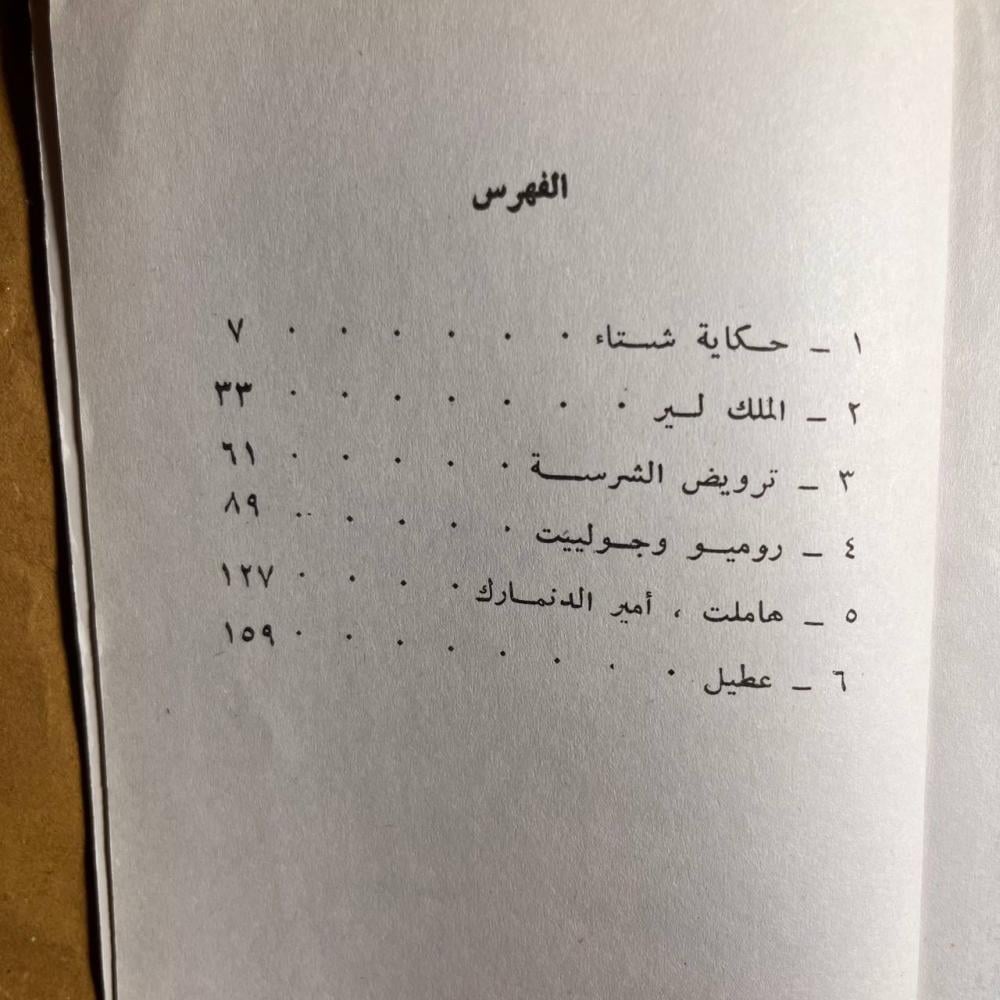 الفهرس
١ – حكاية شتاء . . . . . . ٧
٢ – الملك لير . . . . . . . ٣٣
٣ – ترويض الشرسة . . . . . ٦١
٤ – روميو وجولييت . . . . . ٨٩
٥ – هاملت ، أمير الدنمارك . . . . ١٢٧
٦ – عطيل . . . . . . . . ١٥٩